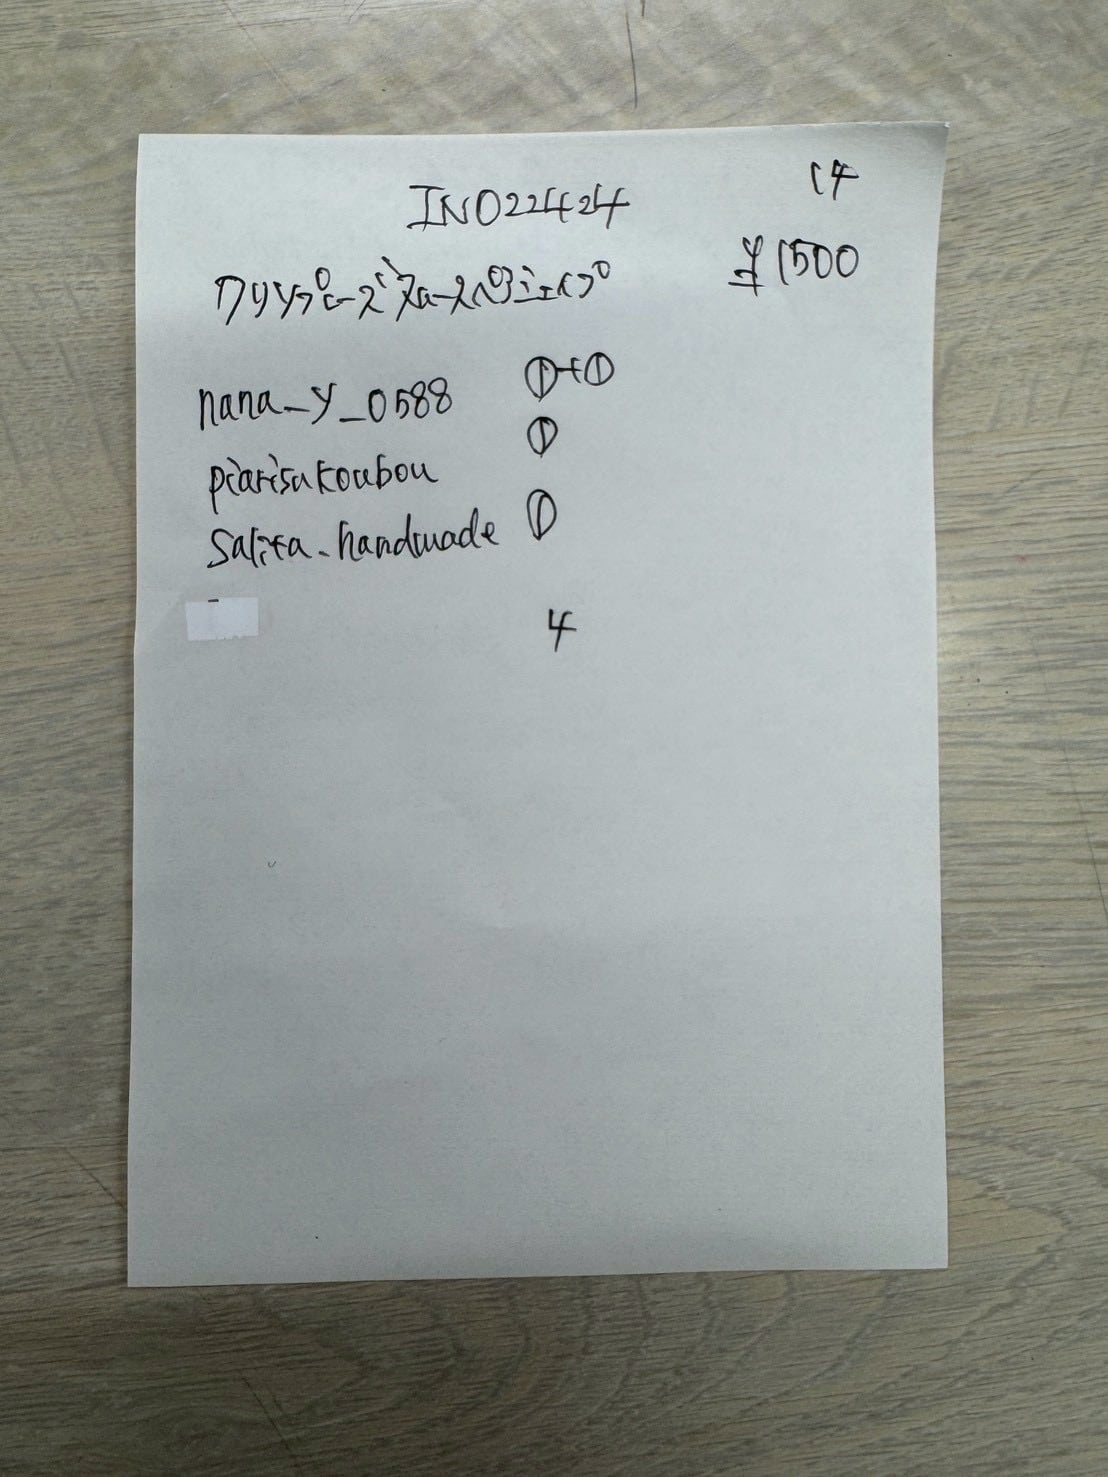 INO22424
14
クリソプレーズ フロースペアシェイプ
¥1500
nana_y_0588 ①+①
piarisukoubou ①
Salita_handmade ①
4